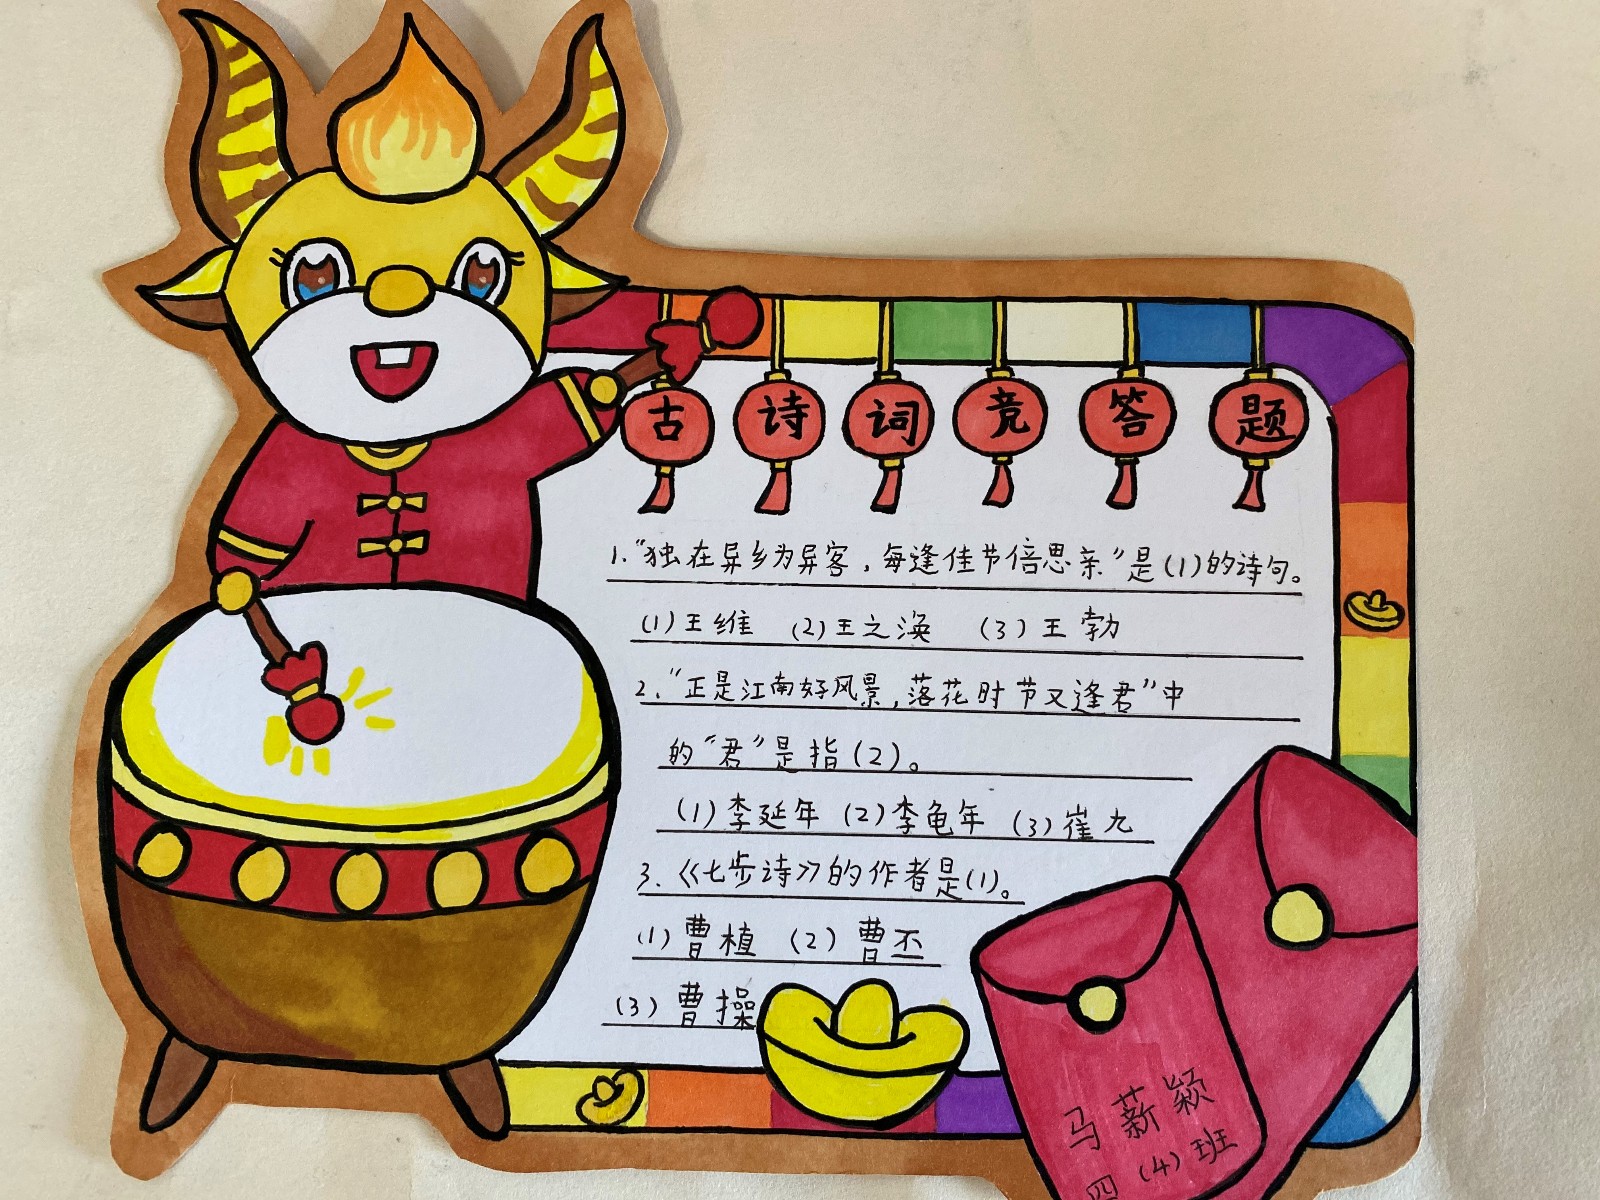 古诗词竞答题
1.“独在异乡为异客，每逢佳节倍思亲”是(1)的诗句。
(1)王维 (2)王之涣 (3)王勃
2.“正是江南好风景，落花时节又逢君”中
的“君”是指(2)。
(1)李延年 (2)李龟年 (3)崔九
3.《七步诗》的作者是(1)。
(1)曹植 (2)曹丕
(3)曹操
马薪颖
四(4)班